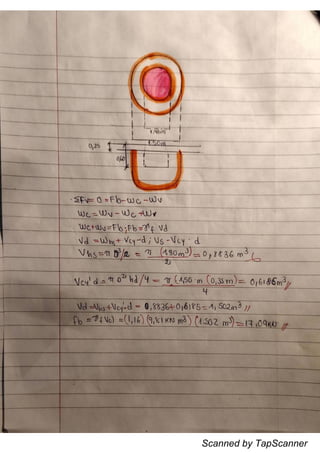 1.50m
0,25
0,60
· ΣFv= 0 = Fb - Wc - Wv
Wc = Wv - Wc + Wv
Wc+Wv=Fb; Fb=γf Vd
Vd = Whs + Vcy-d; Vs - Vcy · d
Vhs = π D³/2 = π (1.90m³) = 0,8836 m³
2
Vcy' d = π D² hd/4 = π (1,50 m (0,35m) = 0,6185 m³ //
4
Vd = Vhs + Vcy-d = 0,8836 + 0,6185 = 1,502m³ //
Fb = γf Vd = (1,16) (9,81KN m³) (1.502 m³) = 17,09KN //
Scanned by TapScanner